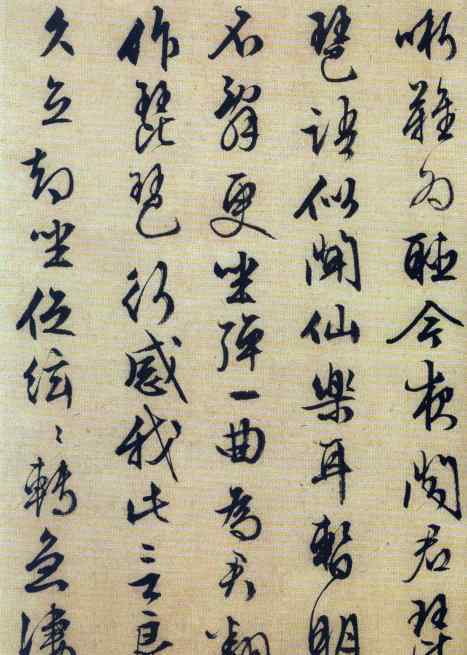 哳難為聽今夜聞君琵
琶語似聞仙樂耳暫明
辭更坐彈一曲為君翻
作琵琶行感我此言良
久立却坐促絃〻轉急淒